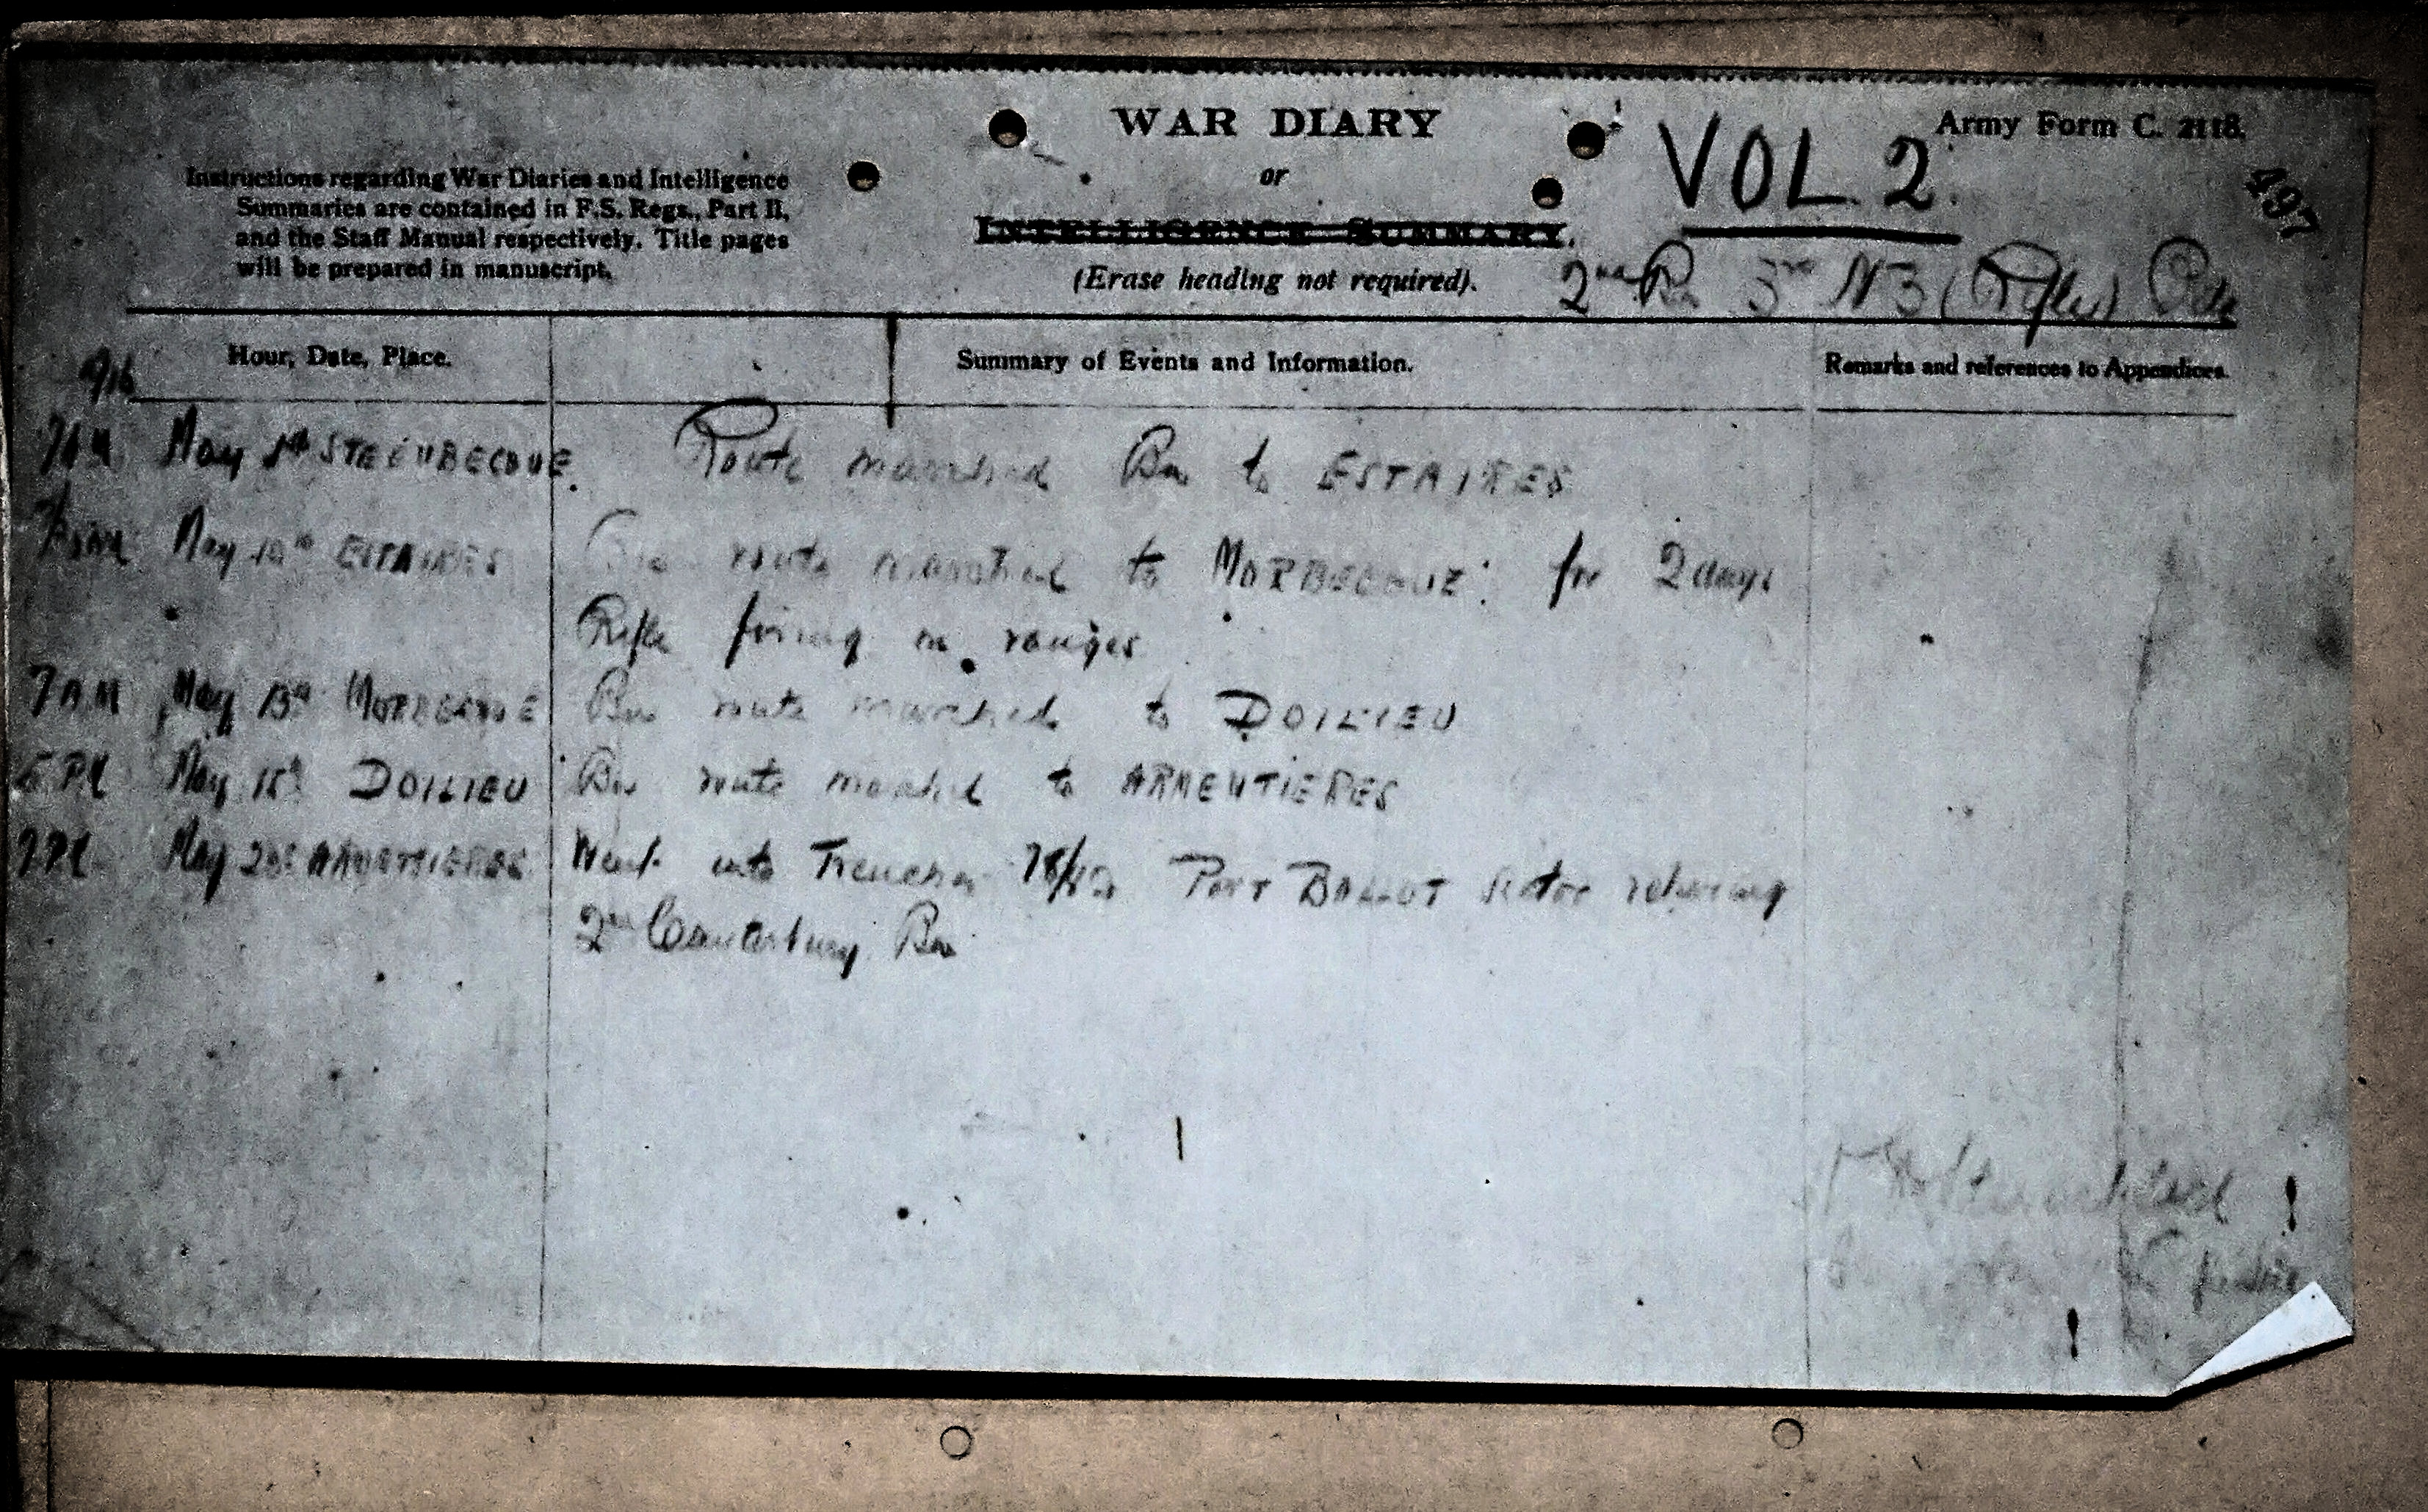 WAR DIARY
or
INTELLIGENCE SUMMARY.
(Erase heading not required).
Army Form C. 2118.
VOL. 2.
497
Instructions regarding War Diaries and Intelligence
Summaries are contained in F.S. Regs., Part II,
and the Staff Manual respectively. Title pages
will be prepared in manuscript.
2nd Bn 3rd NZ (Rifle) Bde
Hour, Date, Place.
Summary of Events and Information.
Remarks and references to Appendices.
7AM May 1st STEENBECQUE. Route marched Bn to ESTAIRES
May 10th ESTAIRES Bn route marched to MORBECQUE: for 2 days
Rifle firing on ranges
7AM May 13th MORBECQUE Bn route marched to DOILIEU
5 PM May 15th DOILIEU Bn route marched to ARMENTIERES
PM May ARMENTIERES Went into Trenches Port BALLOT sector relieving
2nd Canterbury Bn